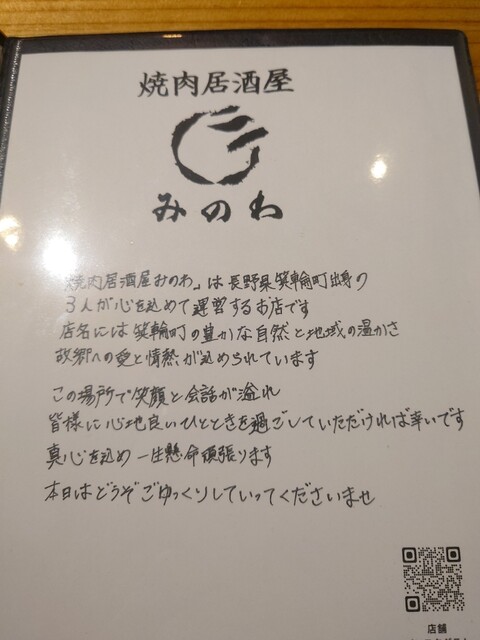 焼肉居酒屋
みのわ
「焼肉居酒屋みのわ」は長野県箕輪町出身の
3人が心を込めて運営するお店です
店名には箕輪町の豊かな自然と地域の温かさ
故郷への愛と情熱が込められています
この場所で笑顔と会話が溢れ
皆様に心地良いひとときを過ごしていただければ幸いです
真心を込め一生懸命頑張ります
本日はどうぞごゆっくりしていってくださいませ
店舗